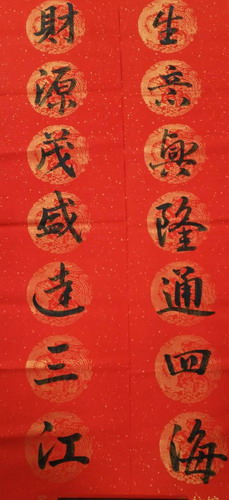 生意興隆通四海
財源茂盛達三江